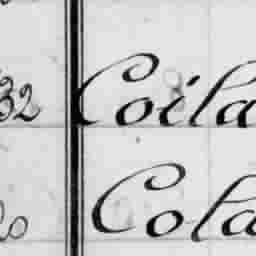 32 Coila
Cola